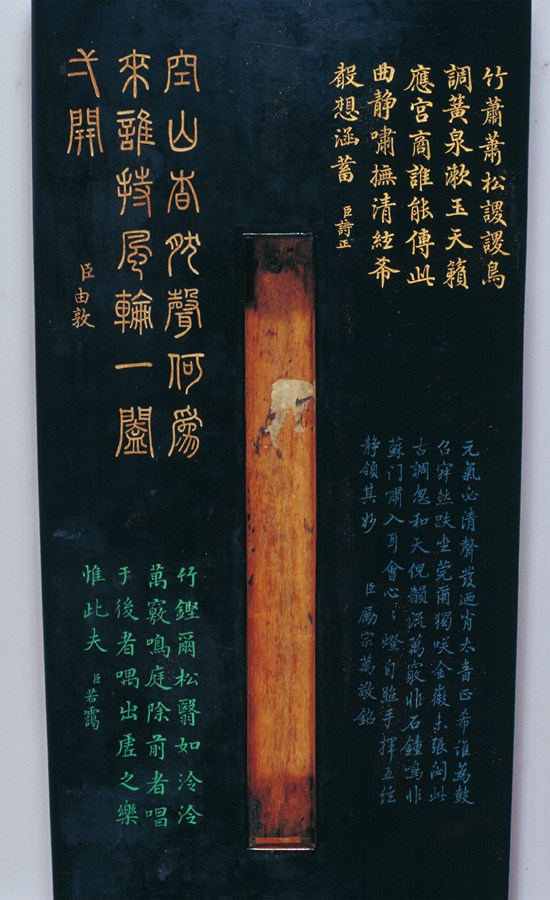 竹蕭蕭松謖謖鳥
調簧泉漱玉天籟
應宫商誰能傳此
曲静嘯撫清絃希
聲想涵蓄 臣詩正
空山杳然聲何爲
來誰持風輪一闔
弌開
臣由敦
元氣必清聲發迺肖太音正希誰為鼓
召窅然趺坐莞爾獨咲金徽未張閟此
古調忽和天倪韻流萬竅非石鐘鳴非
蘇门嘯入耳會心〻燈自照手揮五絃
静領其妙 臣厲宗萬敬銘
竹鏗爾松翳如泠泠
萬竅鳴庭除前者唱
于後者喁出虛之樂
惟此夫 臣若靄